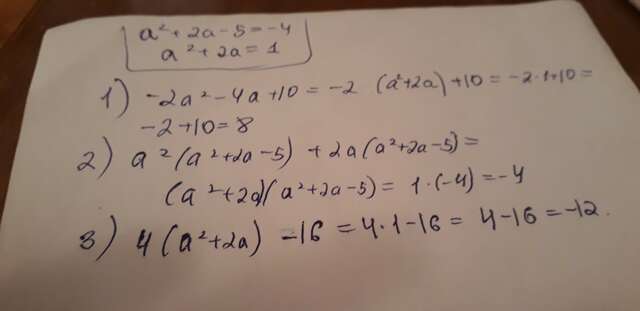 a² + 2a - 5 = -4
a² + 2a = 1
1) -2a² - 4a + 10 = -2 (a² + 2a) + 10 = -2·1+10 =
-2 + 10 = 8
2) a² (a² + 2a - 5) + 2a (a² + 2a - 5) =
(a² + 2a)(a² + 2a - 5) = 1·(-4) = -4
3) 4 (a² + 2a) - 16 = 4·1 - 16 = 4 - 16 = -12.